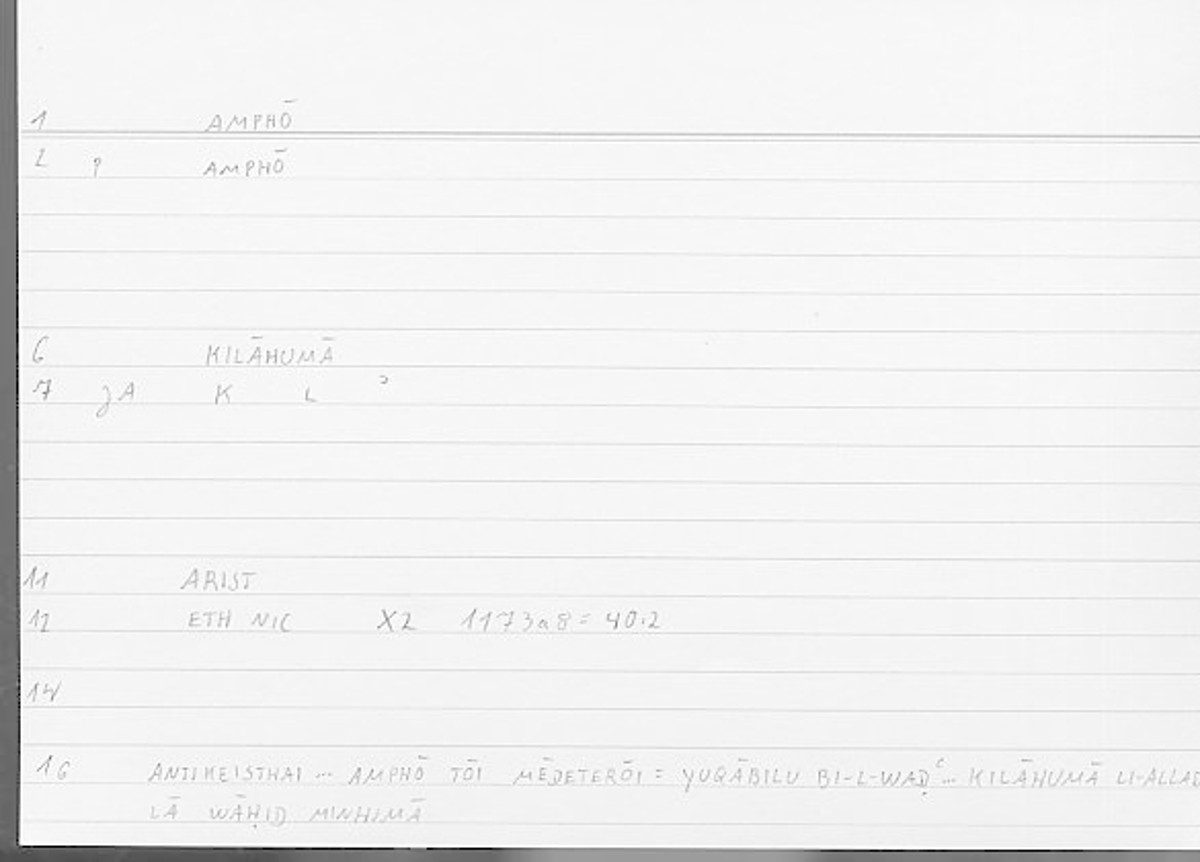 1 AMPHŌ
2 P AMPHŌ
6 KILĀHUMĀ
7 JA K L ʾ
11 ARIST
12 ETH NIC X2 1173a8 = 40.2
14
16 ANTIKEISTHAI ... AMPHŌ TŌI MĒDETERŌI = YUQĀBILU BI-L-WAḌʿ... KILĀHUMĀ LI-ALLAD
LĀ WĀḤID MINHIMĀ